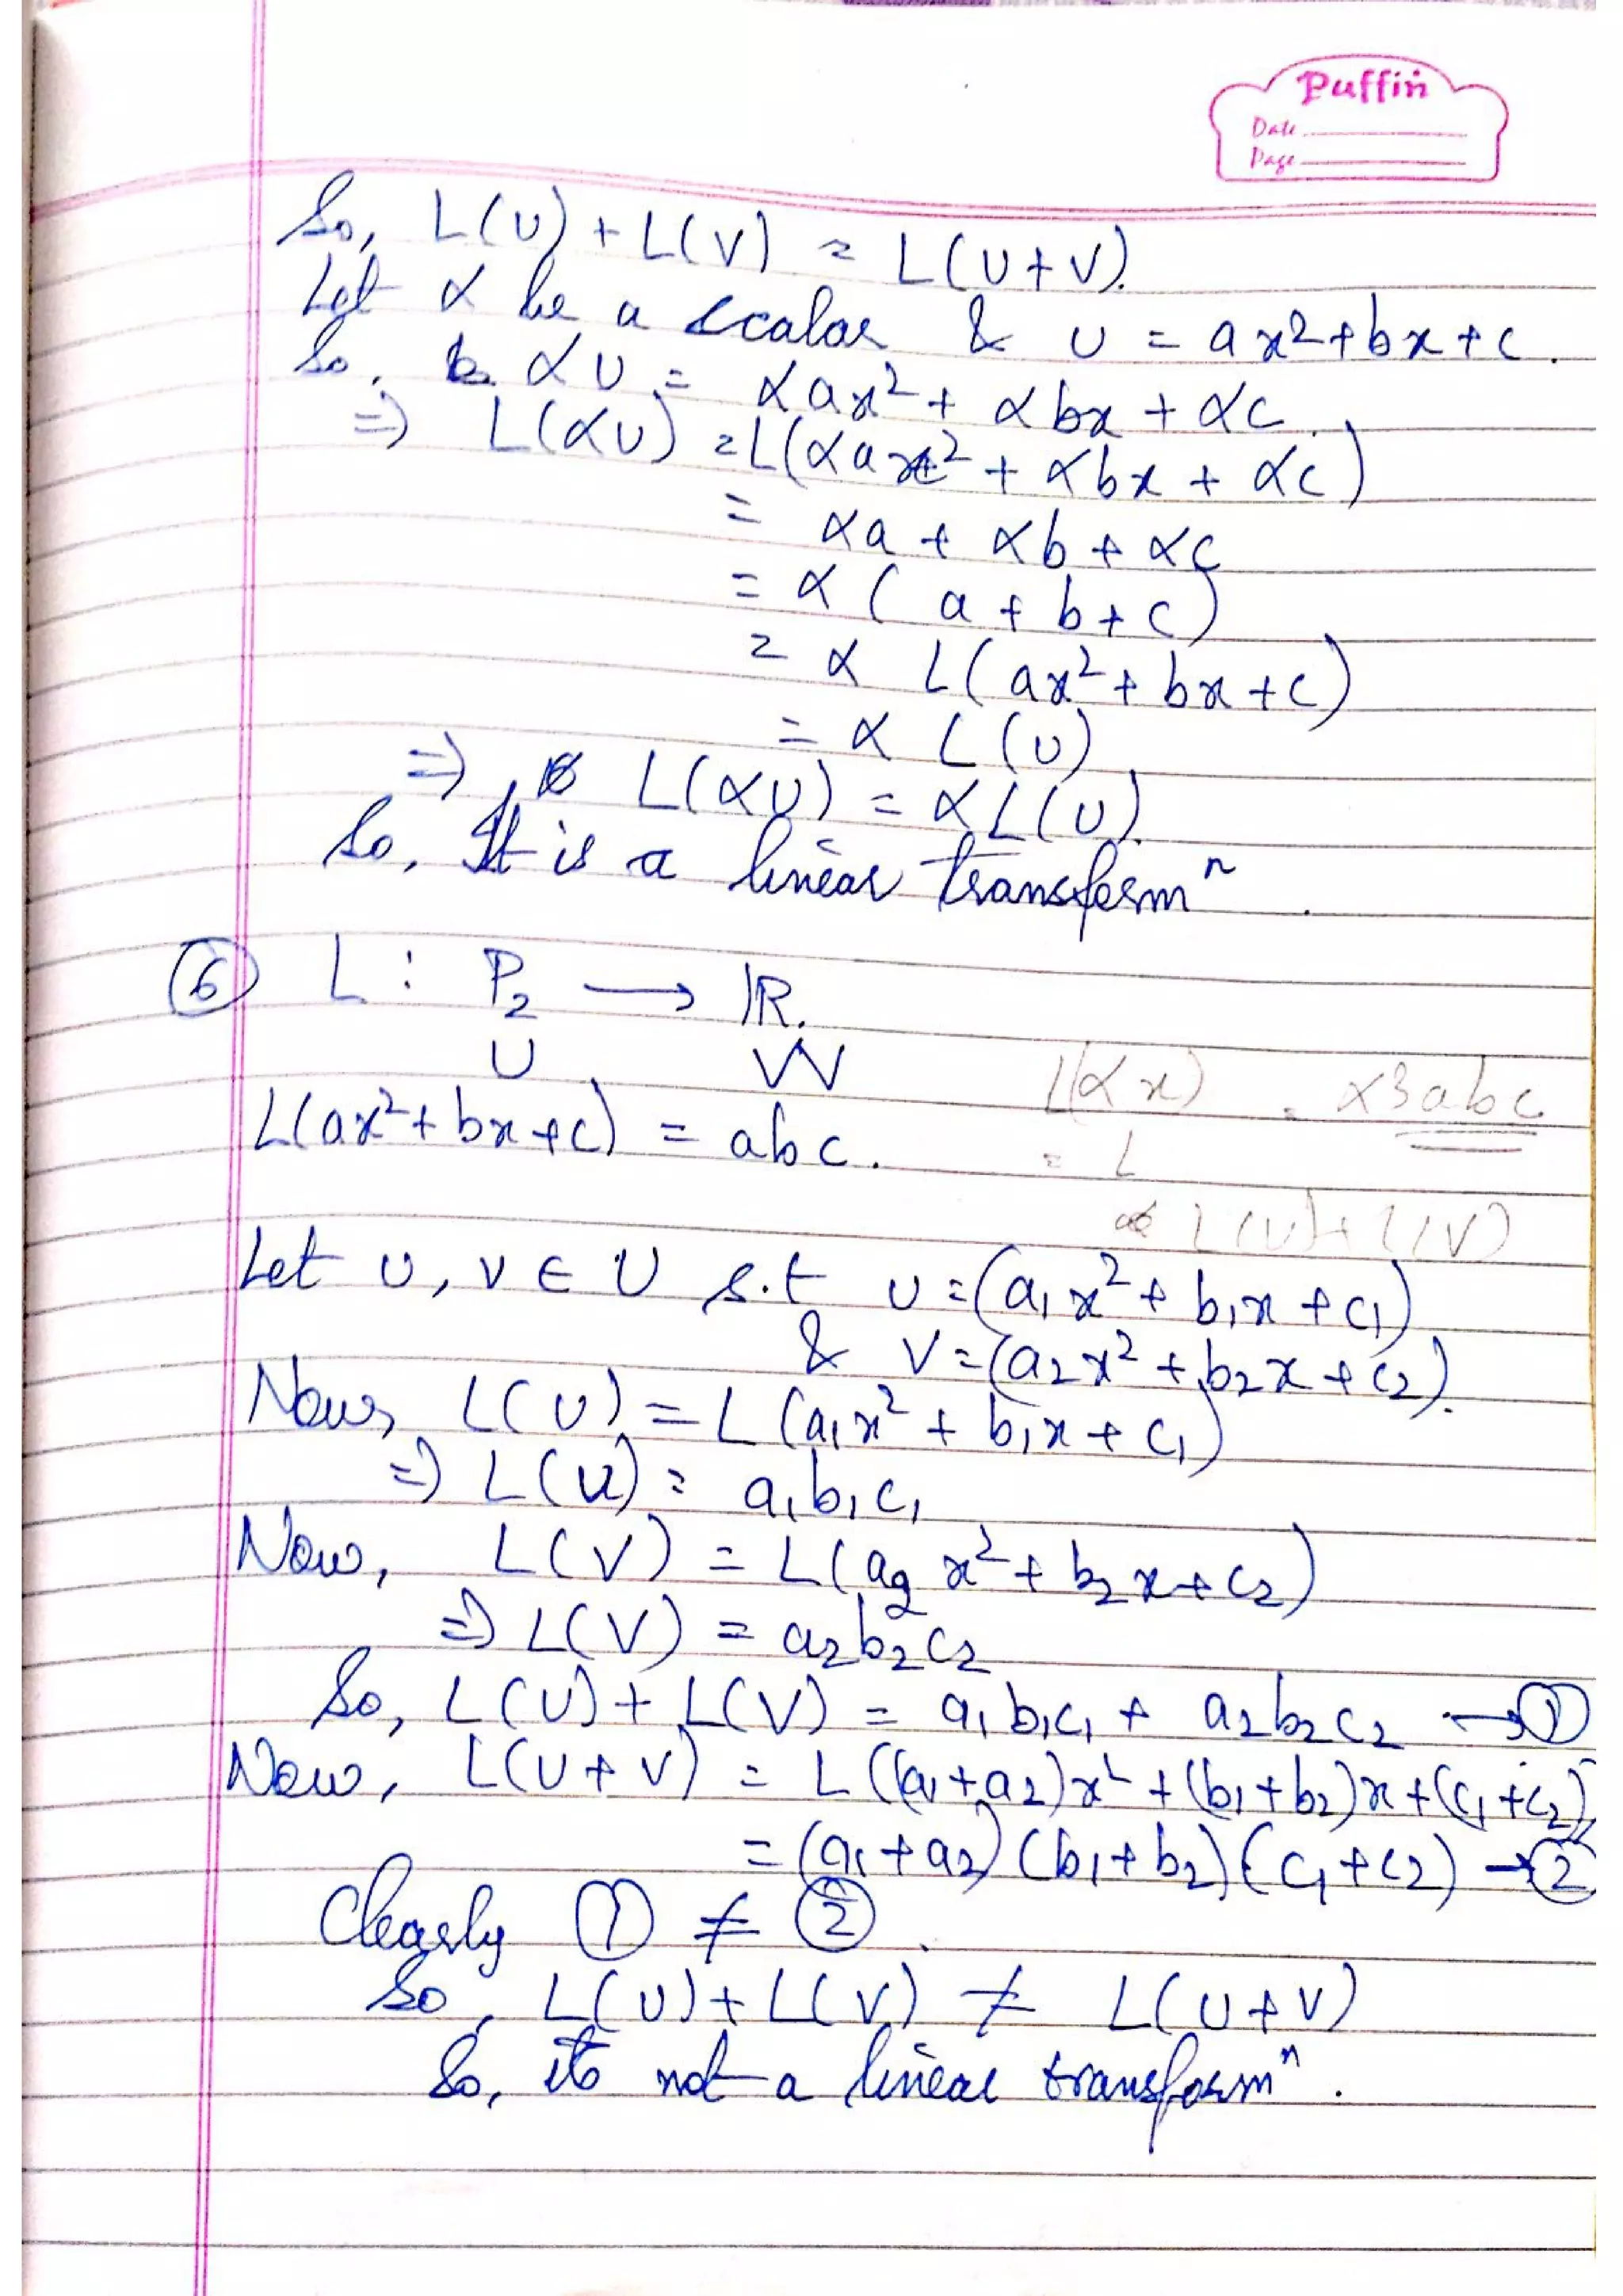 Puffin
Date
Page
So, L(U) + L(V) = L(U+V).
Let α be a scalar & U = ax²+bx+c.
So, αU = αax² + αbx + αc.
⇒ L(αU) = L(αax² + αbx + αc)
= αa + αb + αc
= α(a+b+c)
= α L(ax²+bx+c)
= α L(U)
⇒ L(αU) = αL(U).
So, It is a linear transformⁿ.
⑥ L : P₂ → ℝ.
U W
L(αx) = α3abc
L(ax²+bx+c) = abc.
= L
L(U)+L(V)
Let U, V ∈ U s.t U = (a₁x² + b₁x + c₁)
& V = (a₂x² + b₂x + c₂).
Now, L(U) = L(a₁x² + b₁x + c₁)
⇒ L(U) = a₁b₁c₁
Now, L(V) = L(a₂x² + b₂x + c₂)
⇒ L(V) = a₂b₂c₂
So, L(U) + L(V) = a₁b₁c₁ + a₂b₂c₂ → ①
Now, L(U+V) = L((a₁+a₂)x² + (b₁+b₂)x + (c₁+c₂))
= (a₁+a₂)(b₁+b₂)(c₁+c₂) → ②
Clearly ① ≠ ②.
So, L(U) + L(V) ≠ L(U+V)
So, its not a linear transformⁿ.